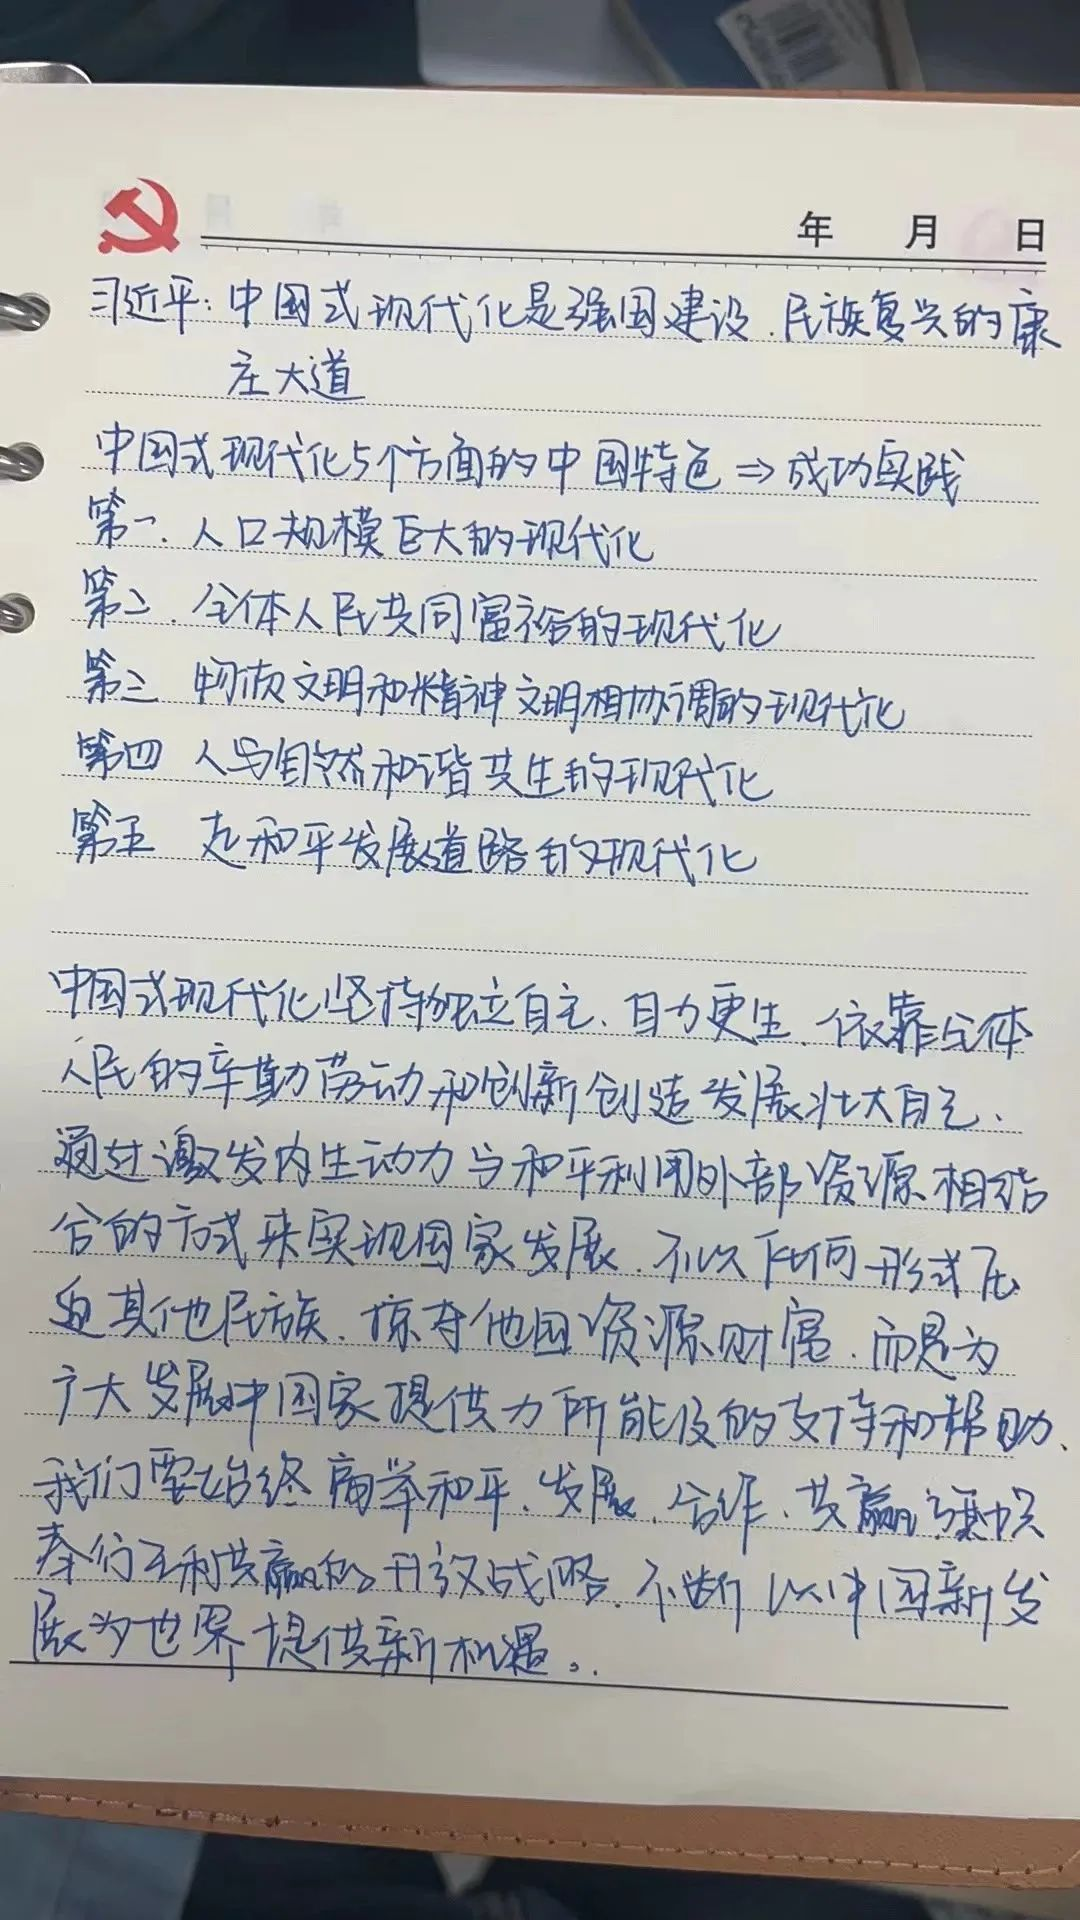 年 月 日
习近平：中国式现代化是强国建设、民族复兴的康
庄大道
中国式现代化5个方面的中国特色⇒成功实践
第一、人口规模巨大的现代化
第二、全体人民共同富裕的现代化
第三 物质文明和精神文明相协调的现代化
第四 人与自然和谐共生的现代化
第五 走和平发展道路的现代化
中国式现代化坚持独立自主、自力更生、依靠全体
人民的辛勤劳动和创新创造发展壮大自己、
通过激发内生动力与和平利用外部资源相结
合的方式来实现国家发展、不以任何形式压
迫其他民族、掠夺他国资源财富、而是为
广大发展中国家提供力所能及的支持和帮助、
我们要始终高举和平、发展、合作、共赢旗帜
奉行互利共赢的开放战略、不断以中国新发
展为世界提供新机遇。